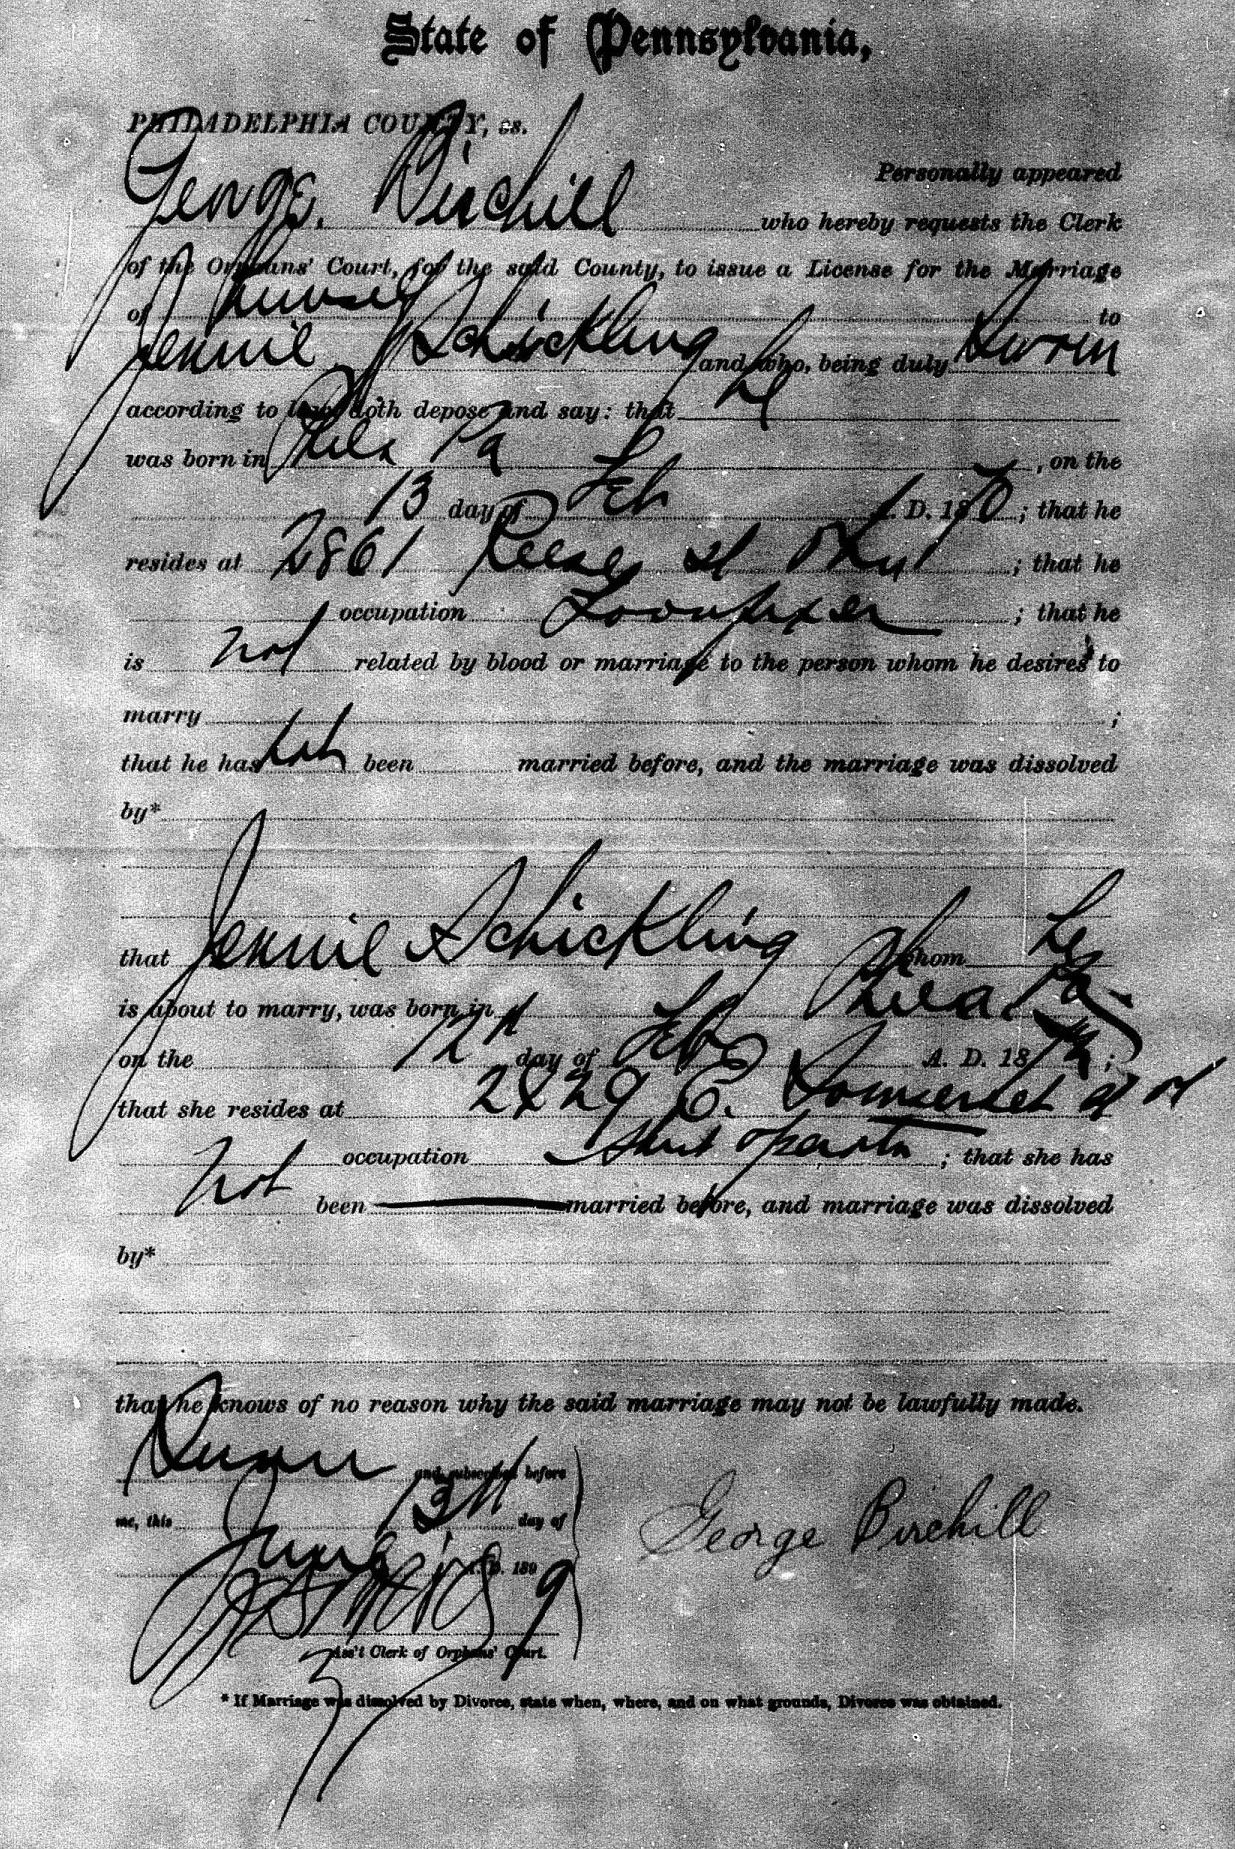 State of Pennsylvania,
PHILADELPHIA COUNTY, ss.
Personally appeared
George Birchill who hereby requests the Clerk
of the Orphans' Court, for the said County, to issue a License for the Marriage
of himself to
Jennie Schickling and who, being duly Sworn
according to law, doth depose and say: that he
was born in Phila Pa , on the
13 day of Feb A. D. 1870 ; that he
resides at 2861 Reese st ; that he
occupation Loomfixer ; that he
is not related by blood or marriage to the person whom he desires to
marry ;
that he has not been married before, and the marriage was dissolved
by*
that Jennie Schickling whom he
is about to marry, was born in Phila Pa.
on the 12th day of Feb A. D. 18 ;
that she resides at E. Somerset st
occupation operator ; that she has
not been married before, and marriage was dissolved
by*
that he knows of no reason why the said marriage may not be lawfully made.
Sworn and subscribed before
me, this 13th day of
June A. D. 1899
George Birchill
Ass't Clerk of Orphans' Court.
* If Marriage was dissolved by Divorce, state when, where, and on what grounds, Divorce was obtained.